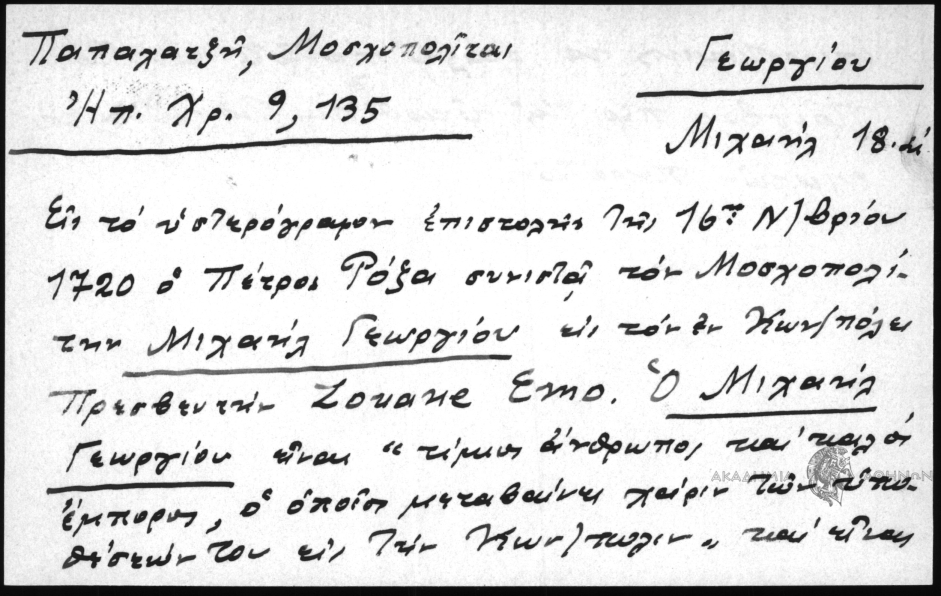 Παπαχατζῆ, Μοσχοπολῖται
Γεωργίου
Ἠπ. Χρ. 9, 135
Μιχαήλ 18. αἰ
Εἰς τό ὑστερόγραμον ἐπιστολῆς τῆς 16ης Ν/βρίου
1720 ὁ Πέτρος Ρόξα συνιστᾷ τόν Μοσχοπολί-
την Μιχαήλ Γεωργίου εἰς τόν ἐν Κων/πόλει
Πρεσβευτήν Zouane Emo. Ὁ Μιχαήλ
Γεωργίου εἶναι "τίμιος ἄνθρωπος καί καλός
ἔμπορος, ὁ ὁποῖος μεταβαίνει χάριν τῶν ὑπο-
θέσεών του εἰς τήν Κων/πολιν" καί εἶναι
ΑΚΑΔΗΜΙΑ ΑΘΗΝΩΝ